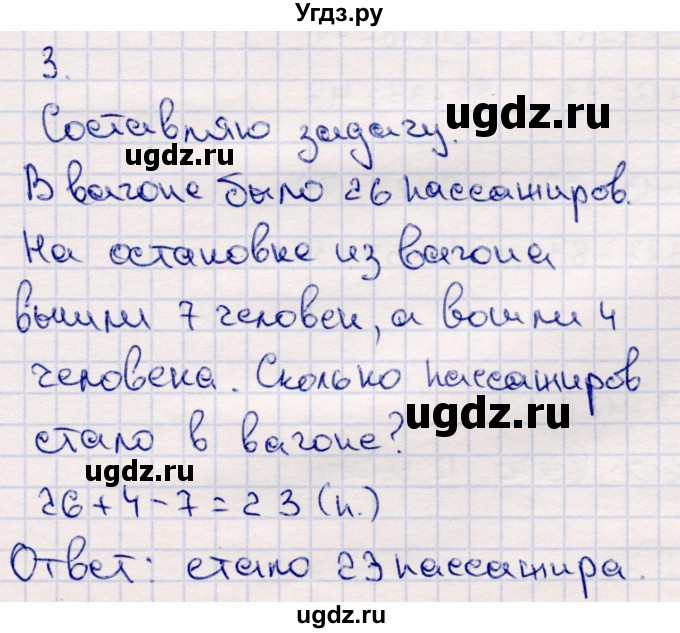 Угдз.ру
3.
Составляю задачу.
ugdz.ru
ugdz.ru
В вагоне было 26 пассажиров.
На остановке из вагона
вышли 7 человек, а вошли 4
человека. Сколько пассажиров
ugdz.ru
стало в вагоне?
ugdz.ru
26 + 4 - 7 = 23 (п.)
Ответ: стало 23 пассажира.
ugdz.ru